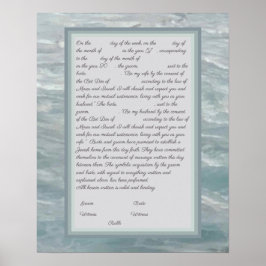 On the day of the week, on the day of
the month of in the year 57 , corresponding
to the day of the month of
in the year 20 , the groom, said to the
bride, "Be my wife by the consent of
the Bet Din of according to the law of
Moses and Israel & will cherish and respect you and
work for our mutual sustenance, living with you as your
husband. The bride, said to the
groom, "Be my husband by the consent
of the Bet Din of according to the law of
Moses and Israel & will cherish and respect you and
work for our mutual sustenance, living with you as your
wife." Bride and groom have promised to establish a
Jewish home from this day forth. They have committed
themselves to the covenant of marriage written this day
between them. The symbolic acquisition by the groom
and bride, with regard to everything written and
explained above has been performed.
All herein written is valid and binding.
Groom Bride
Witness Witness
Rabbi